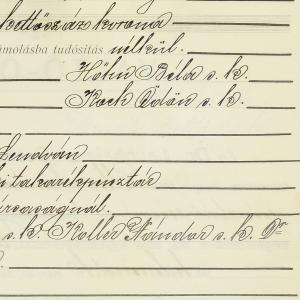 kettőszáz korona
számolásba tudósítás nélkül.
Höhn Béla s. k.
Koch Ödön s. k.
Lendván
takarékpénztár
társaságnál.
s. k. Koller Nándor s. k. Dr